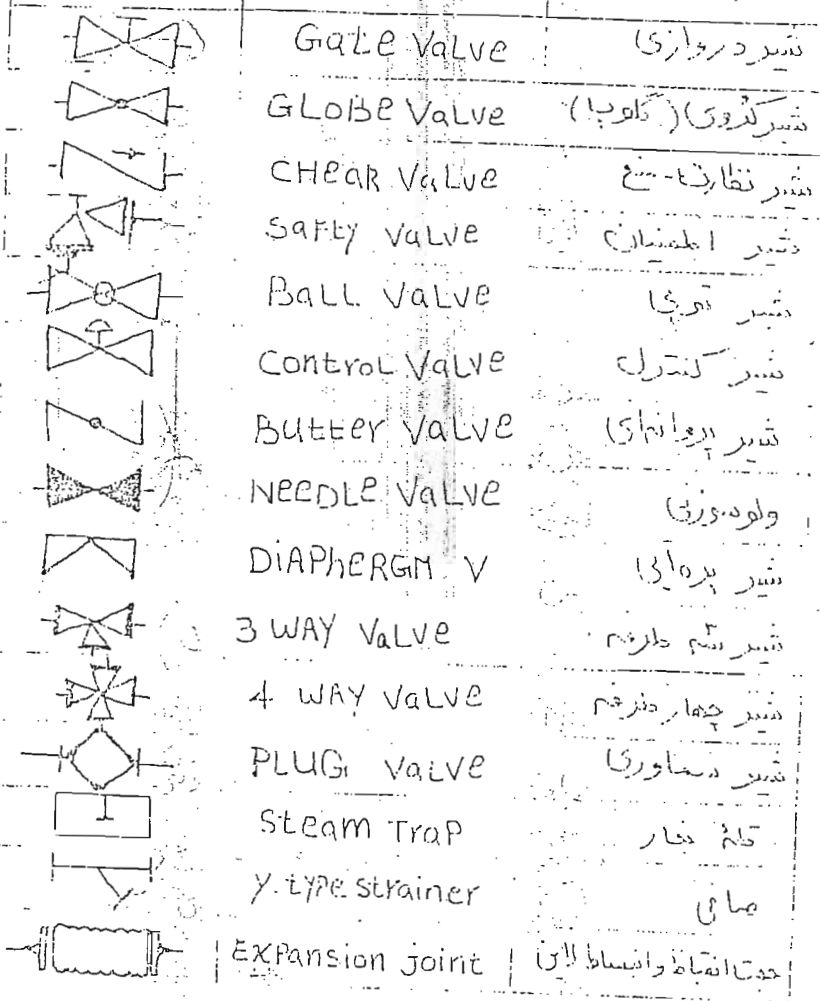 Gate Valve شیر دروازی
GLOBE Valve شیر کروی (گلوب)
CHEAK VaLVe شیر نظارت
Safty Valve شیر اطمینان
BaLL VaLVe شیر توپی
Control Valve شیر کنترل
Butter Valve شیر پروانه‌ای
NeeDLe Valve ولو سوزنی
DiAPhERGM V شیر پره‌ایی
3 WAY VaLVe شیر سه طرفه
4 WAY VaLVe شیر چهار طرفه
PLUG VaLVe شیر سماوری
Steam TraP تلهٔ بخار
Y.type strainer صافی
EXPansion joint جهت انقباظ و انبساط لاین